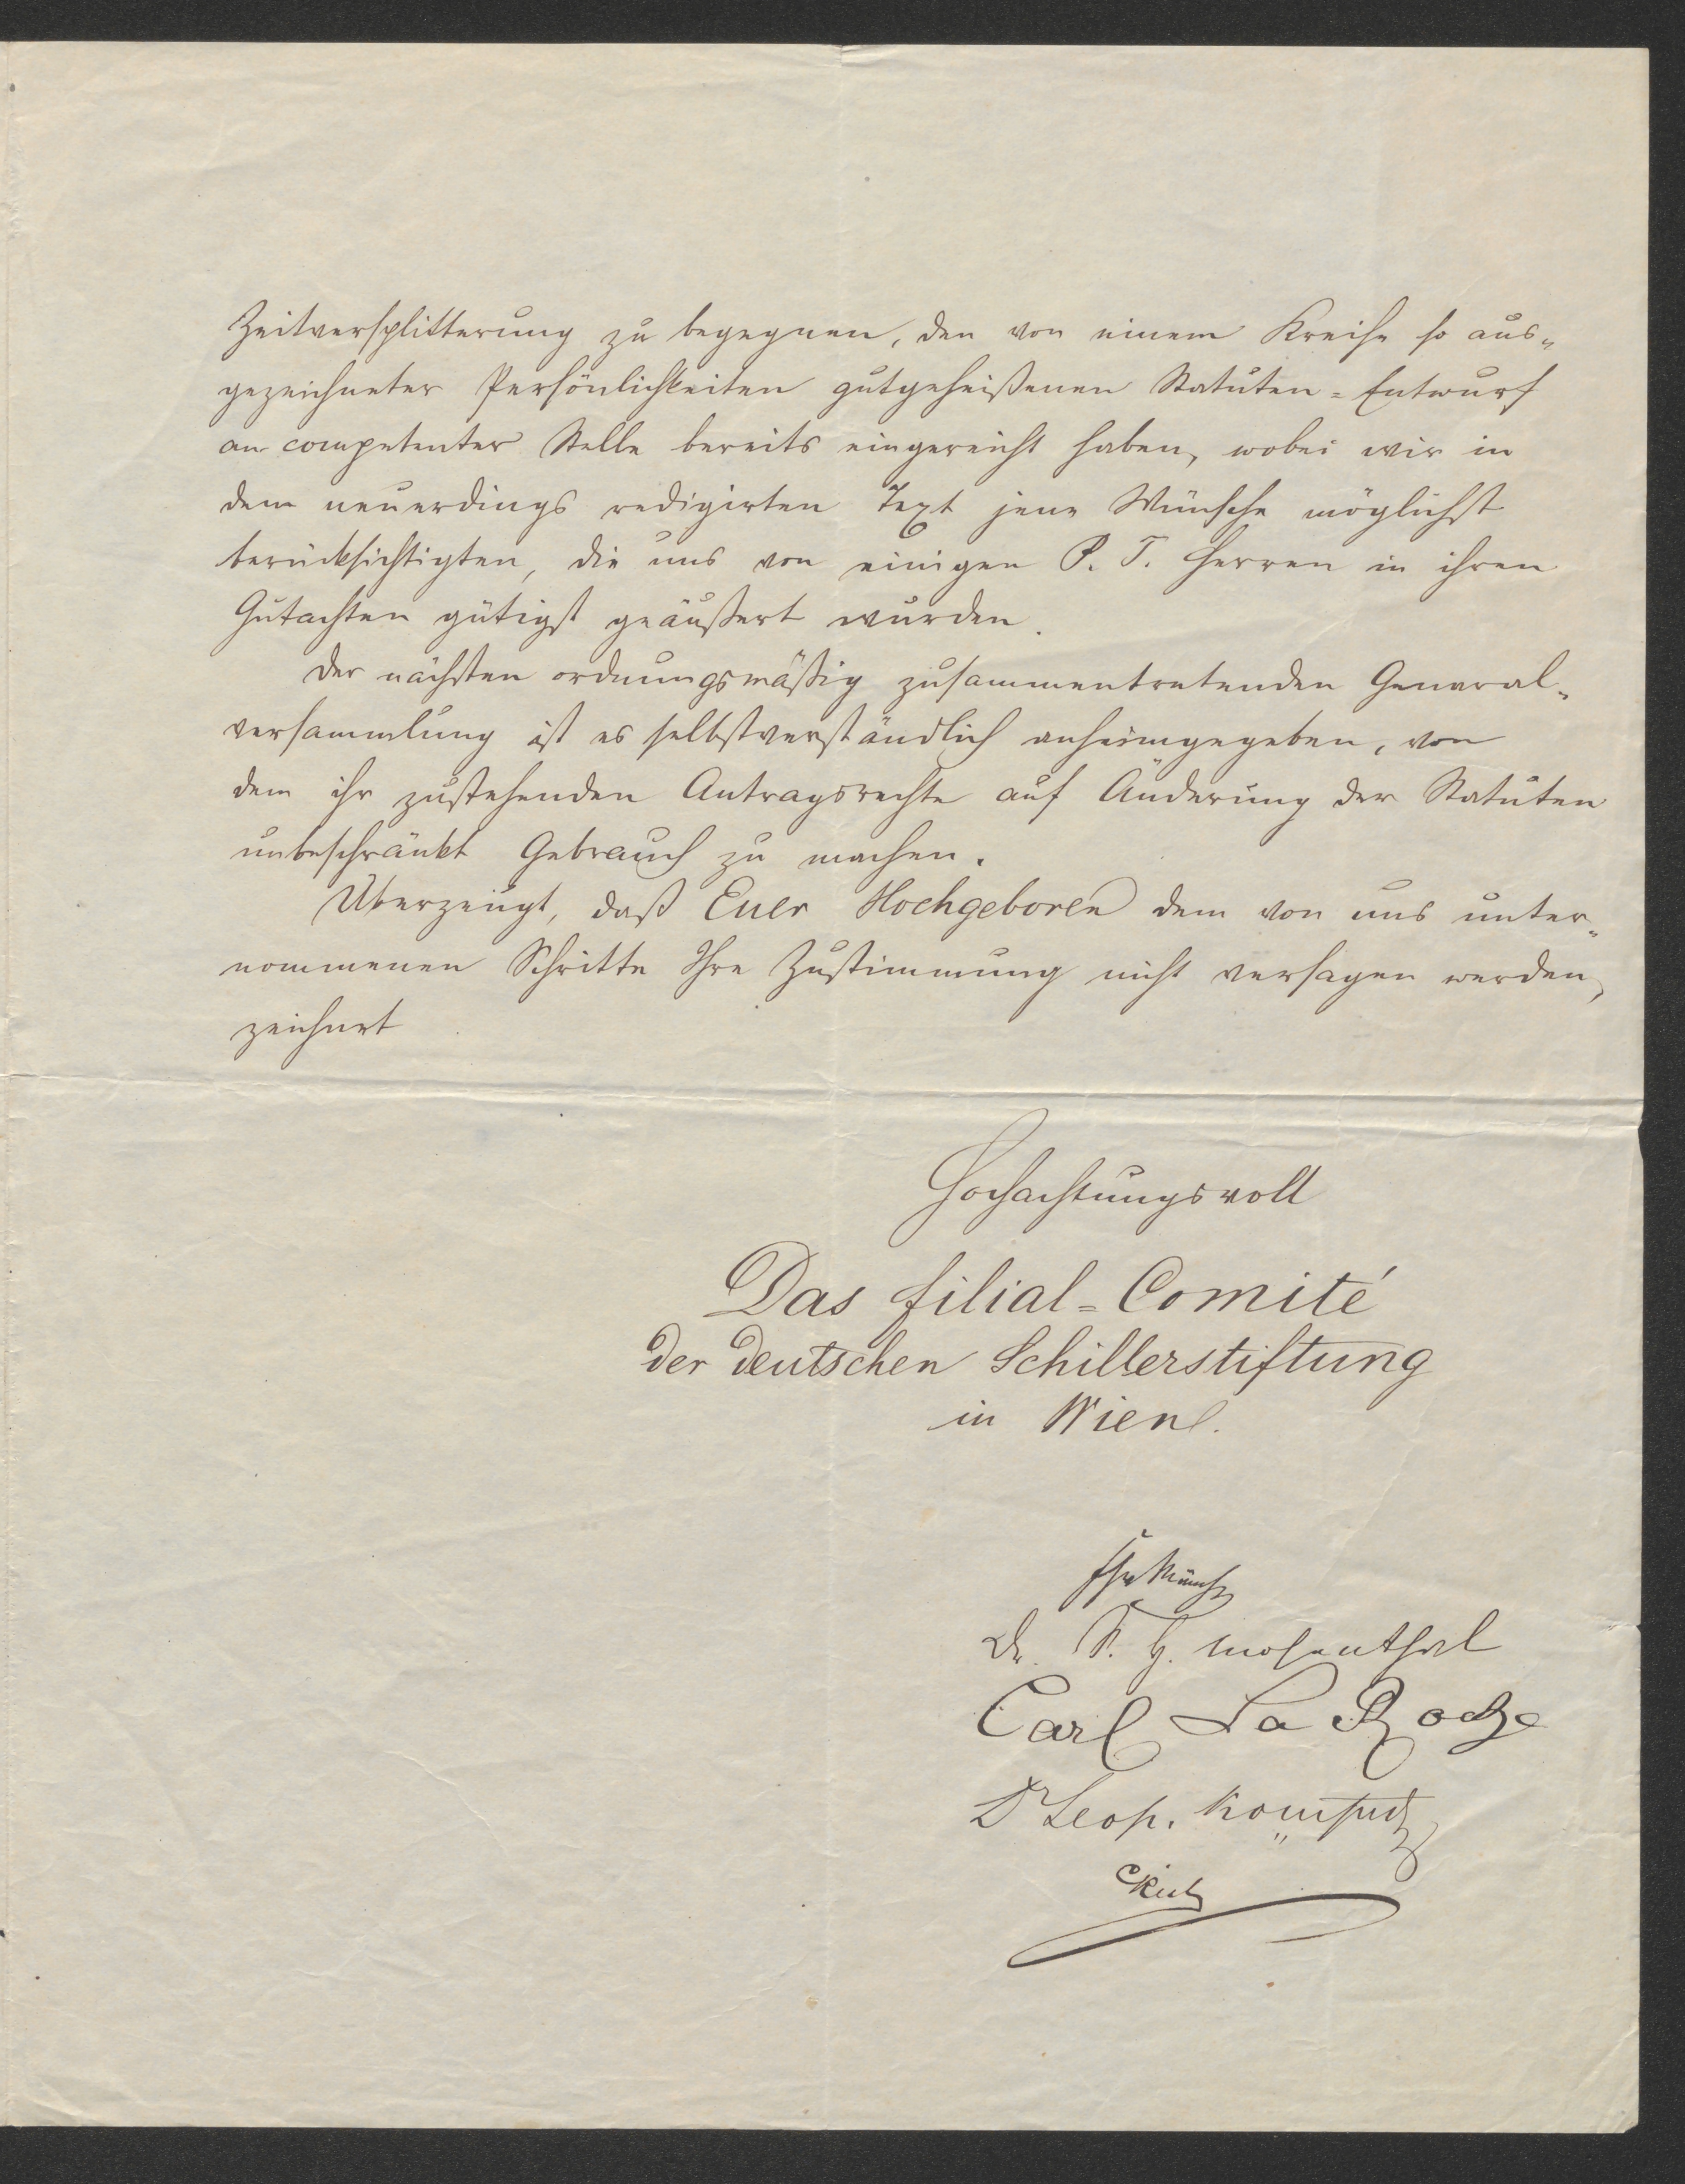 Zeitversplitterung zu begegnen, den von einem Kreise so aus-
gezeichneter Persönlichkeiten gutgeheißenen Statuten-Entwurf
an competenter Stelle bereits eingereicht haben, wobei wir in
dem neuerdings redigirten Text jene Wünsche möglichst
berücksichtigten, die uns von einigen P. T. Herren in ihren
Gutachten gütigst geäußert wurden.
Der nächsten ordnungsmäßig zusammentretenden General-
versammlung ist es selbstverständlich anheimgegeben, von
dem ihr zustehenden Antragsrechte auf Änderung der Statuten
unbeschränkt Gebrauch zu machen.
Überzeugt, daß Euer Hochgeboren dem von uns unter-
nommenen Schritte Ihre Zustimmung nicht versagen werden,
zeichnet
Hochachtungsvoll
Das filial-Comité
der deutschen Schillerstiftung
in Wien.
Dr. S. H. Mosenthal
Carl La Roche
Dr Leop. Kompert